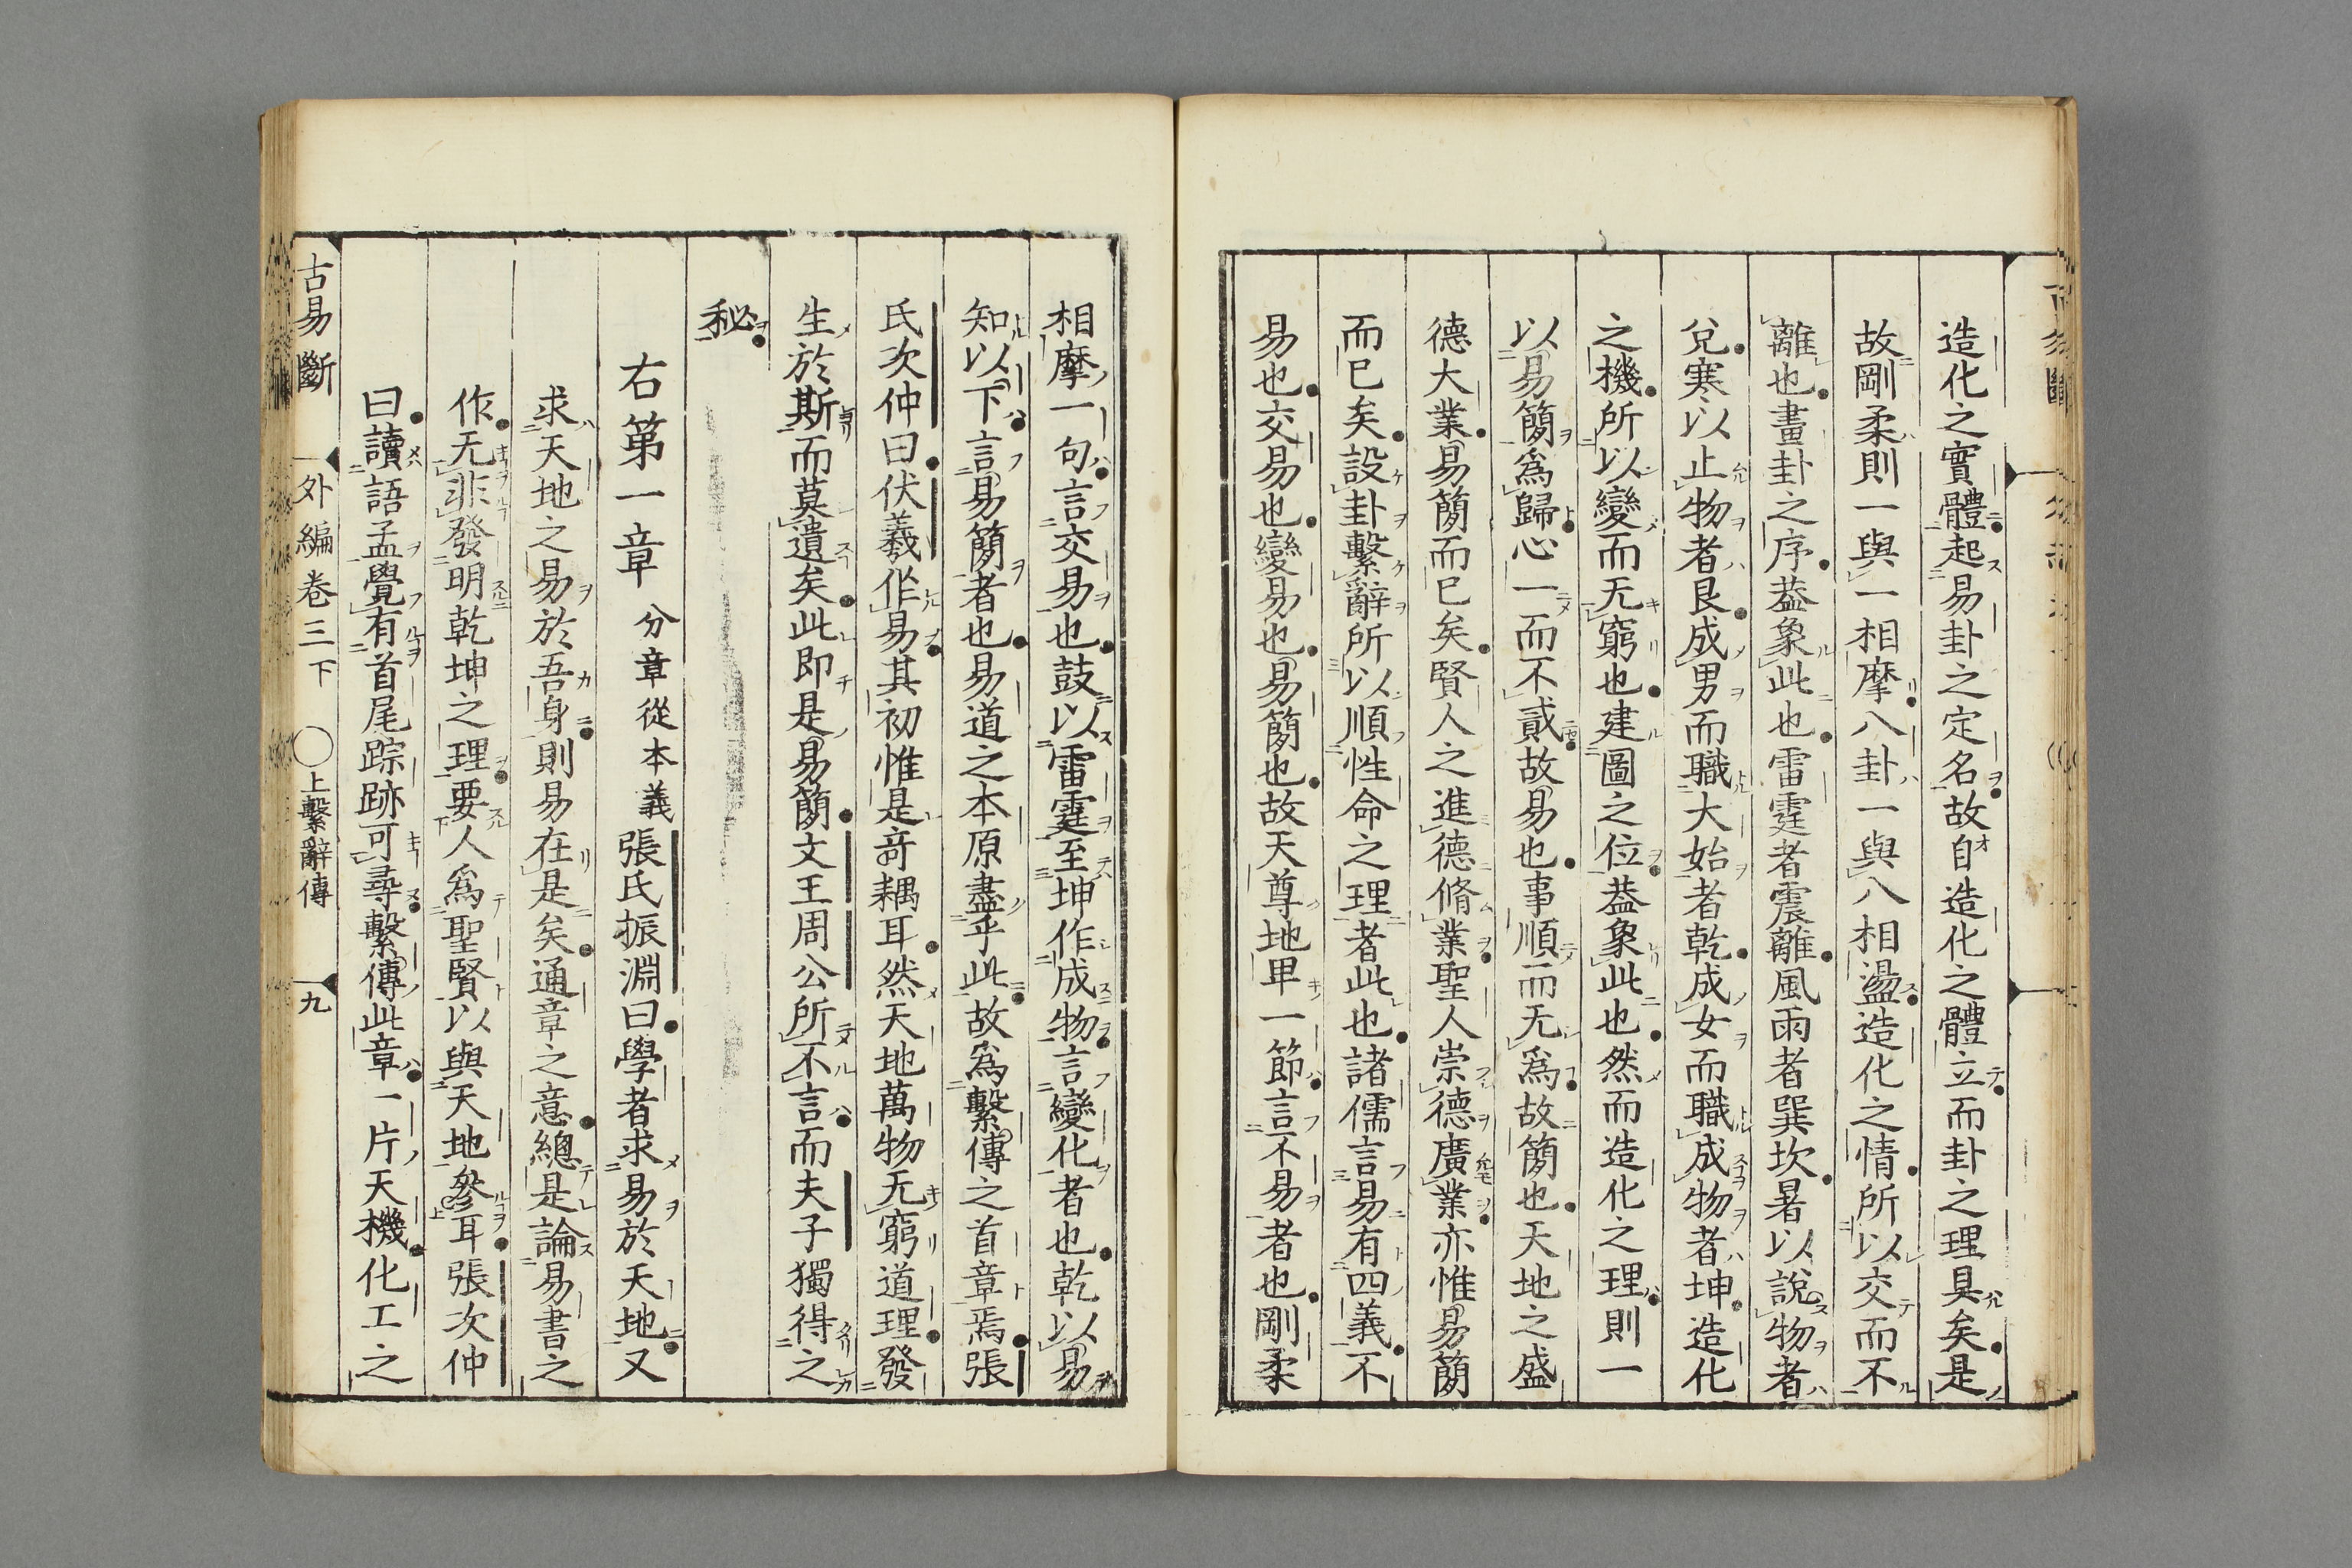 造化之實體起易卦之定名故自造化之體立而卦之理具矣是
故剛柔則一與一相摩八卦一與八相盪造化之情所以交而不
離也畫卦之序葢象此也雷霆者震離風雨者巽坎暑以說物者
兌寒以止物者艮成男而職大始者乾成女而職成物者坤造化
之機所以變而无窮也建圖之位葢象此也然而造化之理則一
以易簡爲歸心一而不貳故易也事順而无爲故簡也天地之盛
德大業易簡而已矣賢人之進德脩業聖人崇德廣業亦惟易簡
而已矣設卦繫辭所以順性命之理者此也諸儒言易有四義不
易也交易也變易也易簡也故天尊地卑一節言不易者也剛柔
相摩一句言交易也鼓以雷霆至坤作成物言變化者也乾以易
知以下言易簡者也易道之本原盡乎此故爲繫傳之首章焉張
氏次仲曰伏羲作易其初惟是奇耦耳然天地萬物无窮道理發
生於斯而莫遺矣此即是易簡文王周公所不言而夫子獨得之
秘
右第一章 分章從本義 張氏振淵曰學者求易於天地又
求天地之易於吾身則易在是矣通章之意總是論易書之
作无非發明乾坤之理要人爲聖賢以與天地參耳張次仲
曰讀語孟覺有首尾踪跡可尋繫傳此章一片天機化工之
古易斷 外編卷三下 ○上繫辭傳 九